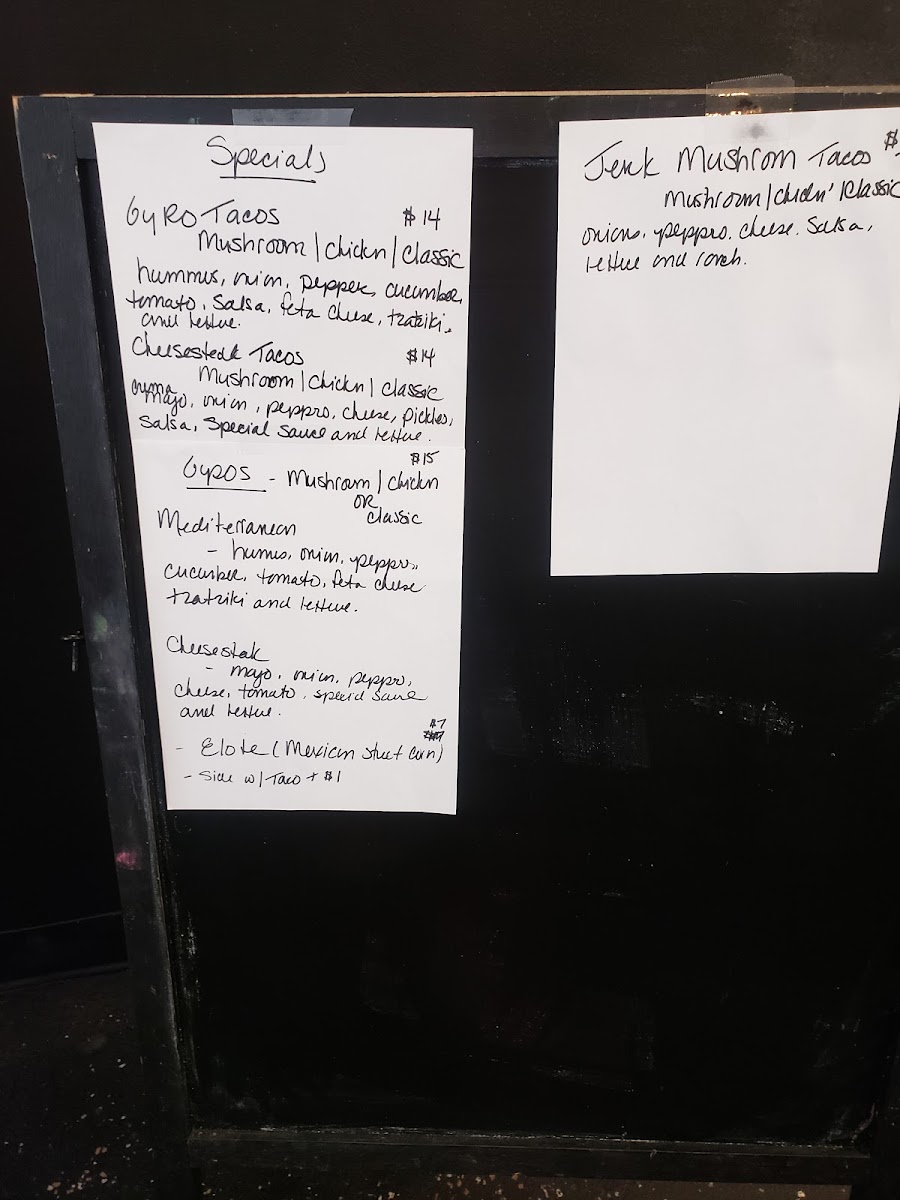 Specials
Gyro Tacos $14
Mushroom | Chickn | Classic
hummus, onion, pepper, cucumber,
tomato, salsa, feta cheese, tzatziki,
and lettuce.
Cheesesteak Tacos $14
Mushroom | Chickn | Classic
mayo, onion, peppro, cheese, pickles,
salsa, special sauce and lettuce.
$15
Gyros - Mushroom | Chickn
OR
Classic
Mediterranean
- humus, onion, peppro,
cucumber, tomato, feta cheese
tzatziki and lettuce.
Cheesestak
- mayo, onion, peppro,
cheese, tomato, special sauce
and lettuce.
$7
- Elote (Mexican street corn)
- Side w/ Taco + $1
Jerk Mushrom Tacos $
Mushroom | Chickn' | Classic
onions, peppro, cheese, salsa,
lettuce and ranch.